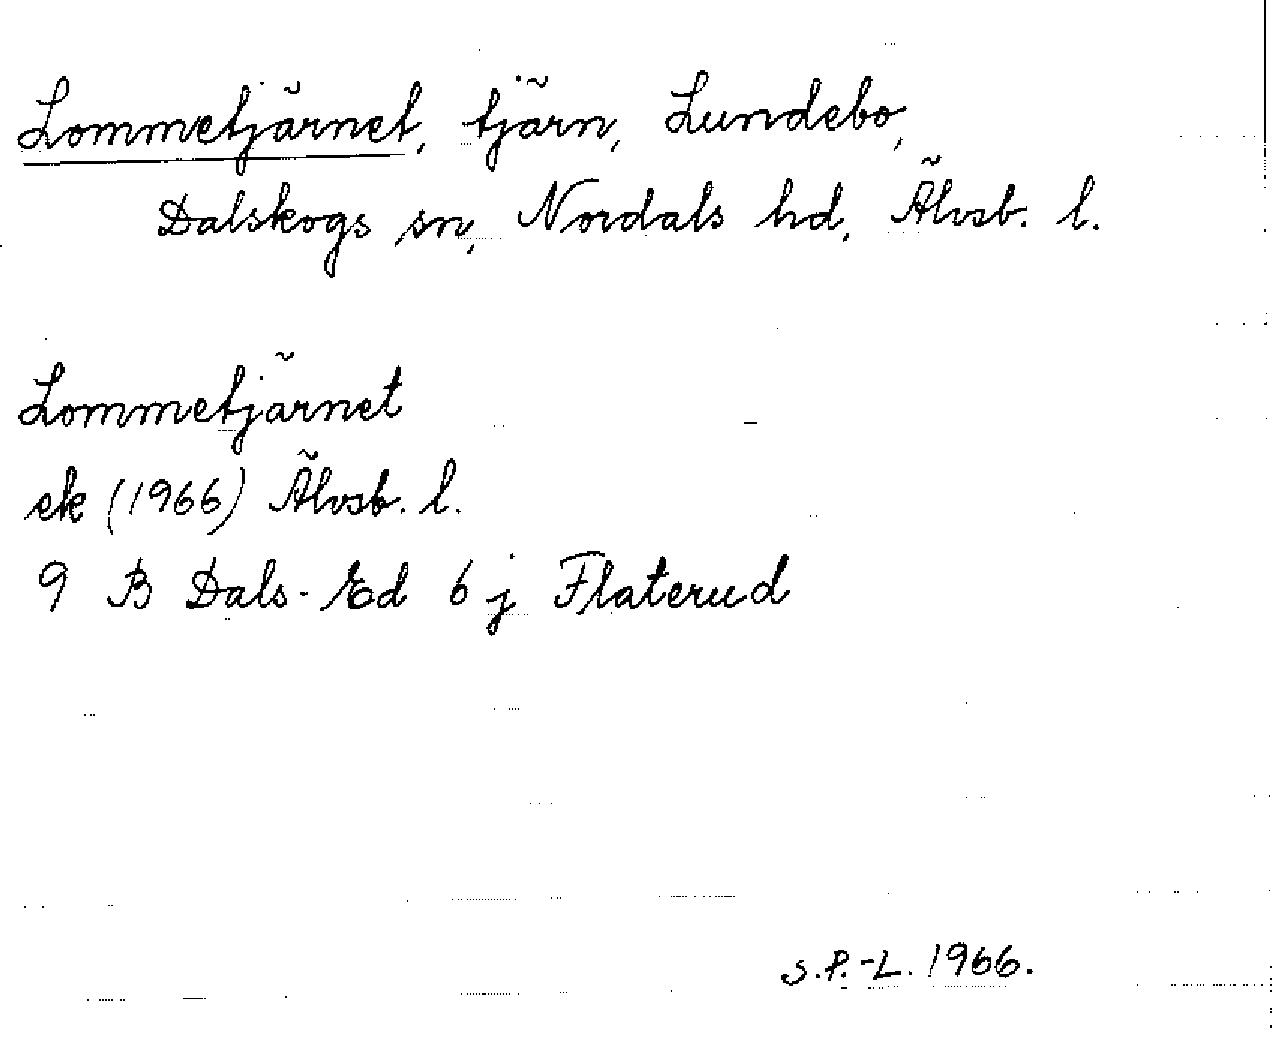 Lommetjärnet, tjärn, Lundebo,
Dalskogs sn, Nordals hd, Älvsb. l.
Lommetjärnet
ek (1966) Älvsb. l.
9 B Dals-Ed 6 j Flaterud
S.P.-L. 1966.